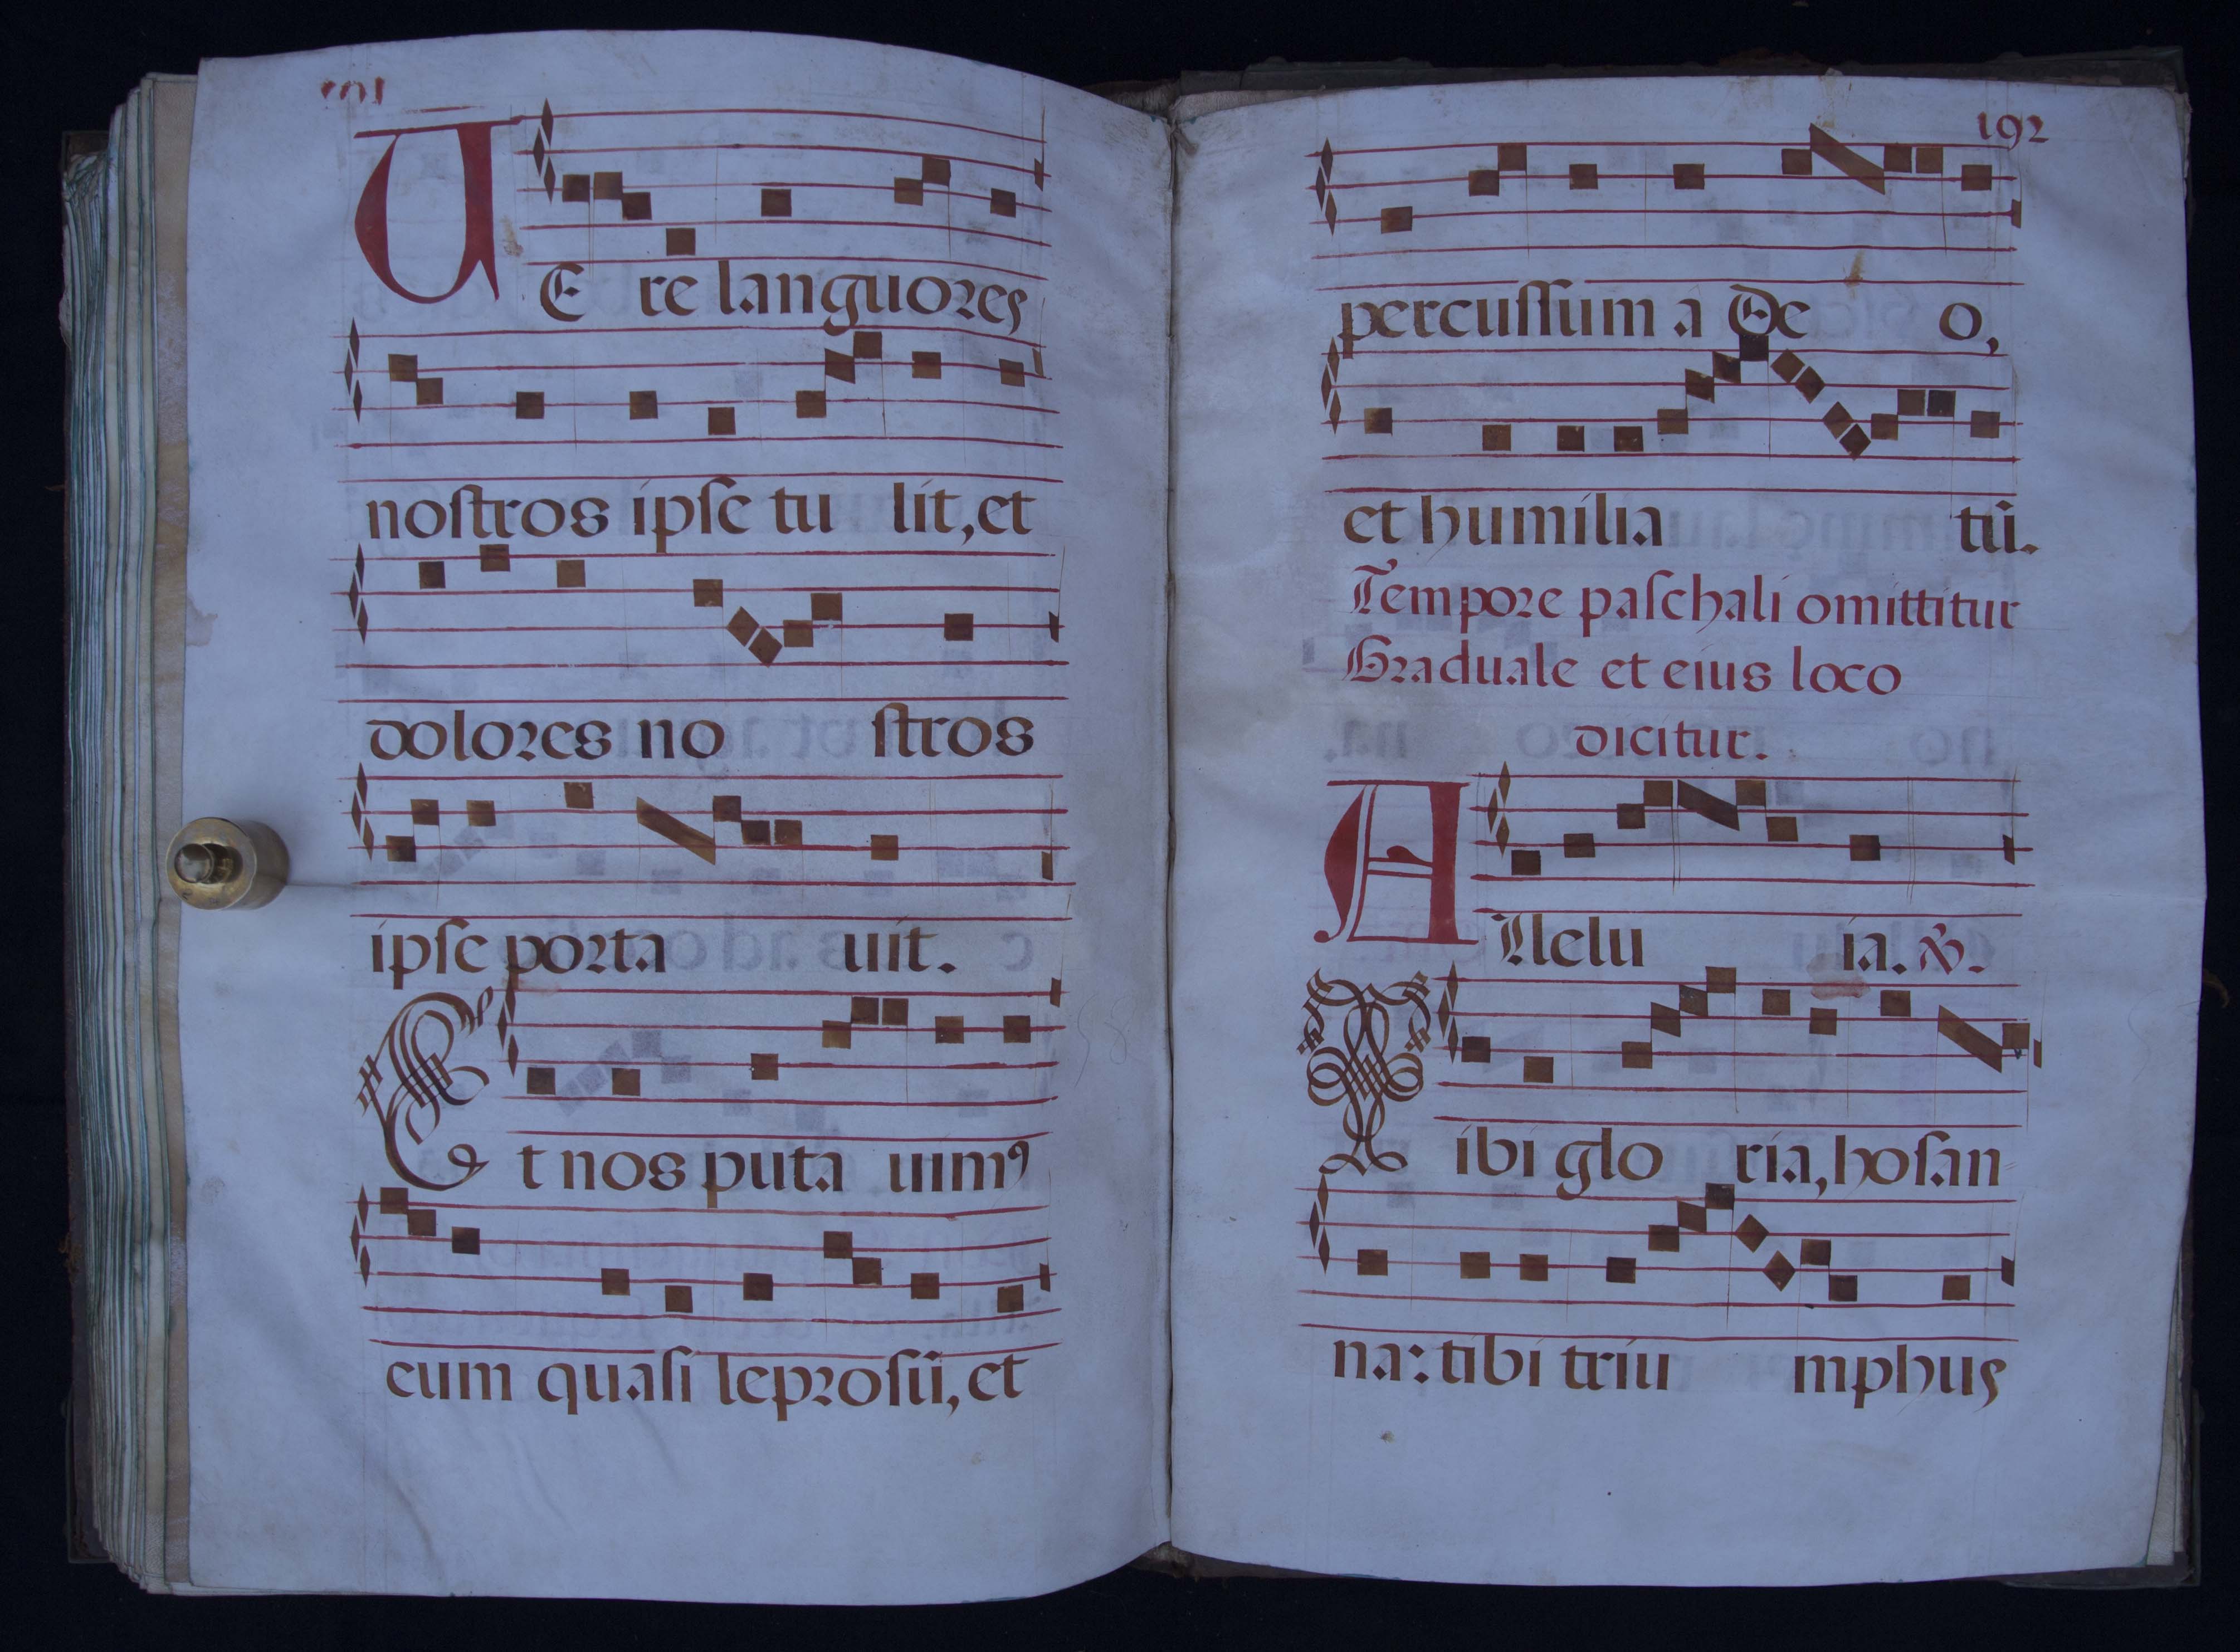 VE re languores
nostros ipse tu lit, et
dolores no stros
ipse porta uit.
Et nos puta uimꝰ
eum quasi leprosū, et
192
percussum a De o,
et humilia tū.
Tempore paschali omittitur
Graduale et eius loco
dicitur.
Allelu ia. ℣.
Tibi glo ria, hosan
na: tibi triu mphus